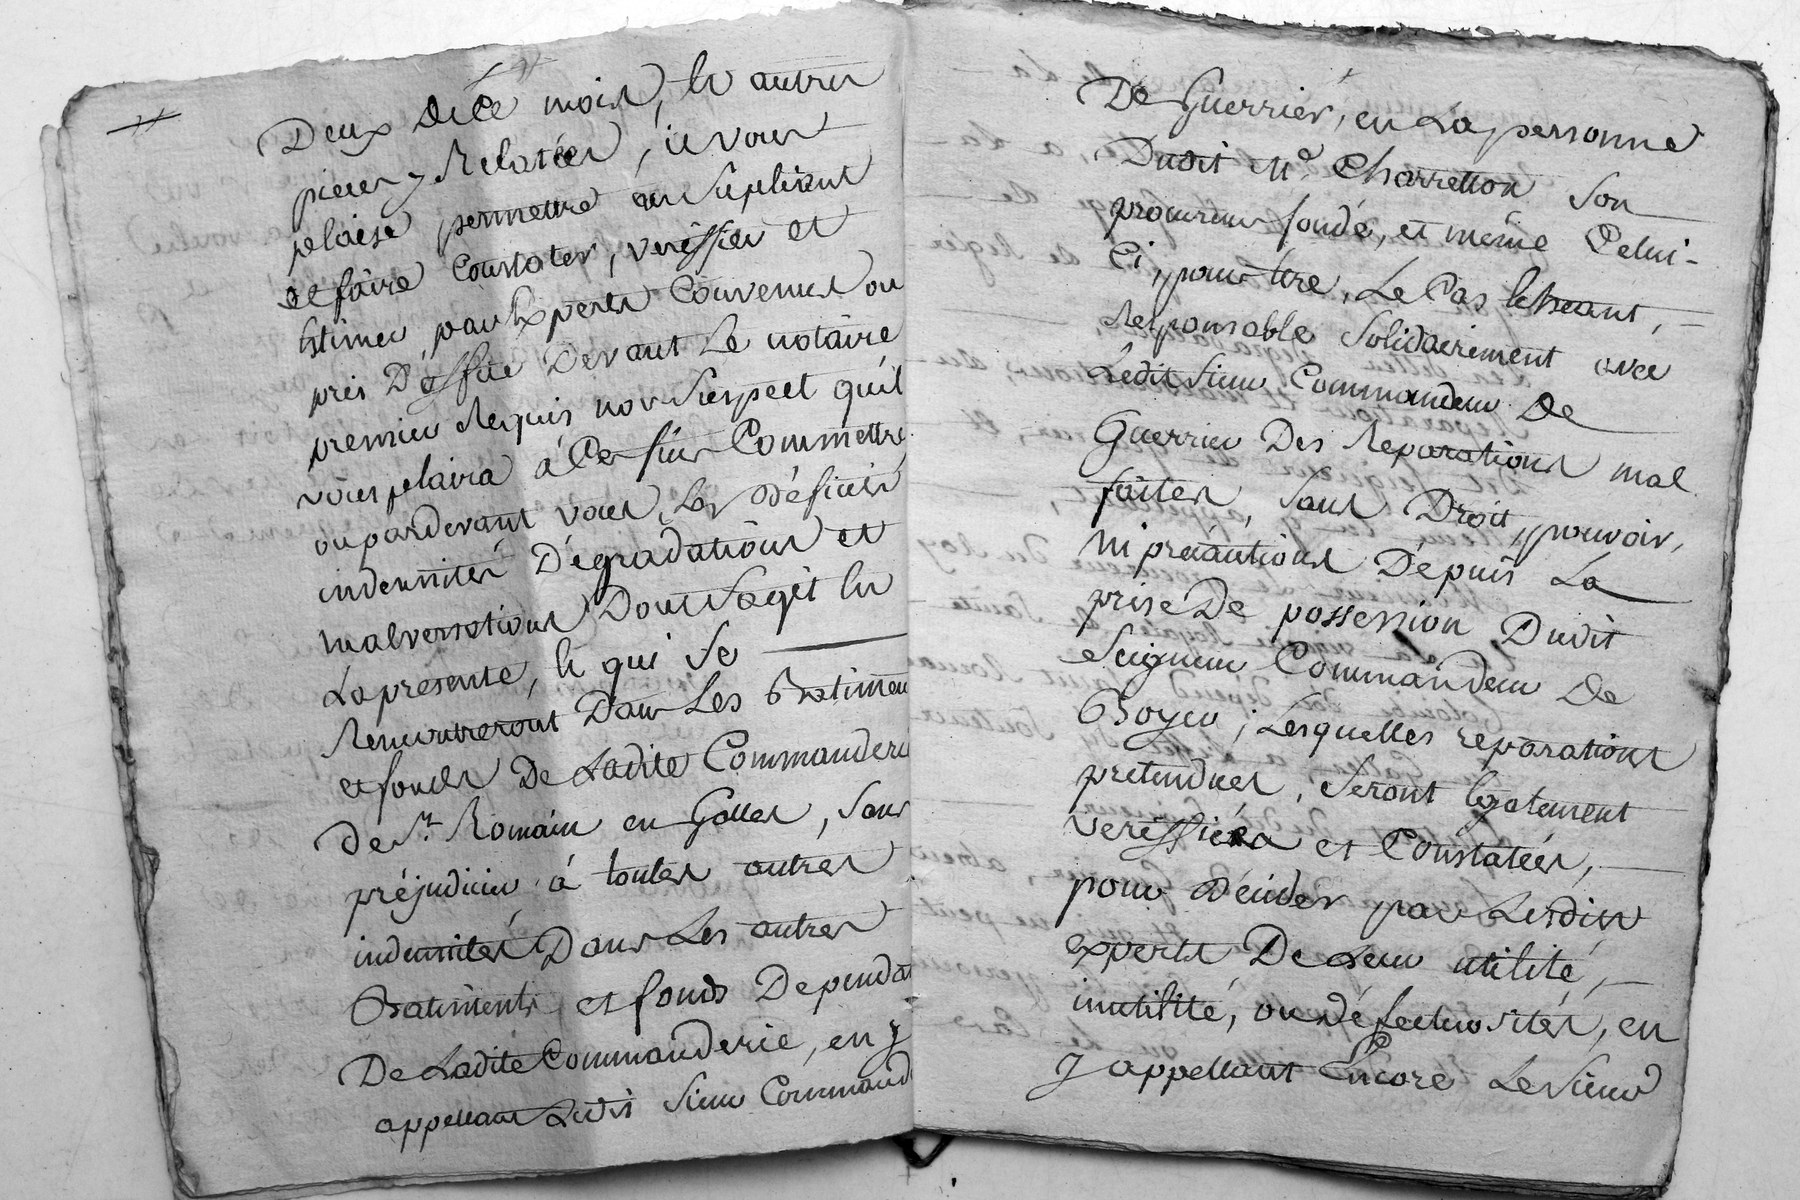 Deux de Ce mois, les autres
pieces y Relatées, il vous
plaise permettre au Supliant
de faire Constater, veriffier et
Estimer par Experts Convenus ou
pris D'office Devant Le notaire
premier Requis non Suspect qu'il
vous plaira à Ces fins Commettre
ou pardevant vous, Les Déficits
indemnités Dégradations et
malversations Dont S'agit En
La présente, Et qui Se
Rencontreront Dans Les Batimens
et fonds De Ladite Commanderie
De St. Romain en Galles, Sans
préjudicier à toutes autres
indemnités Dans Les autres
Batiments et fonds Dependat
De Ladite Commanderie, en y
appellant Ledit Sieur Command
De Guerrier, en La personne
Dudit Me. Charretton Son
procureur fondé, et même Celui-
Ci, pour être, Le Cas Echeant,
Responsable Solidairement avec
Ledit Sieur Commandeur De
Guerrier Des Reparations mal
faites, Sans Droit, pouvoir,
Ni précautions Dépuis La
prise De possession Dudit
Seigneur Commandeur De
Boyer ; Lesquelles réparations
prétendues, Seront Egalement
veriffiées et Constatées,
pour Décider par Lesdits
experts De Leur utilité,
inutilité, ou Défectuosités, en
y appellant Encore Le Sieur